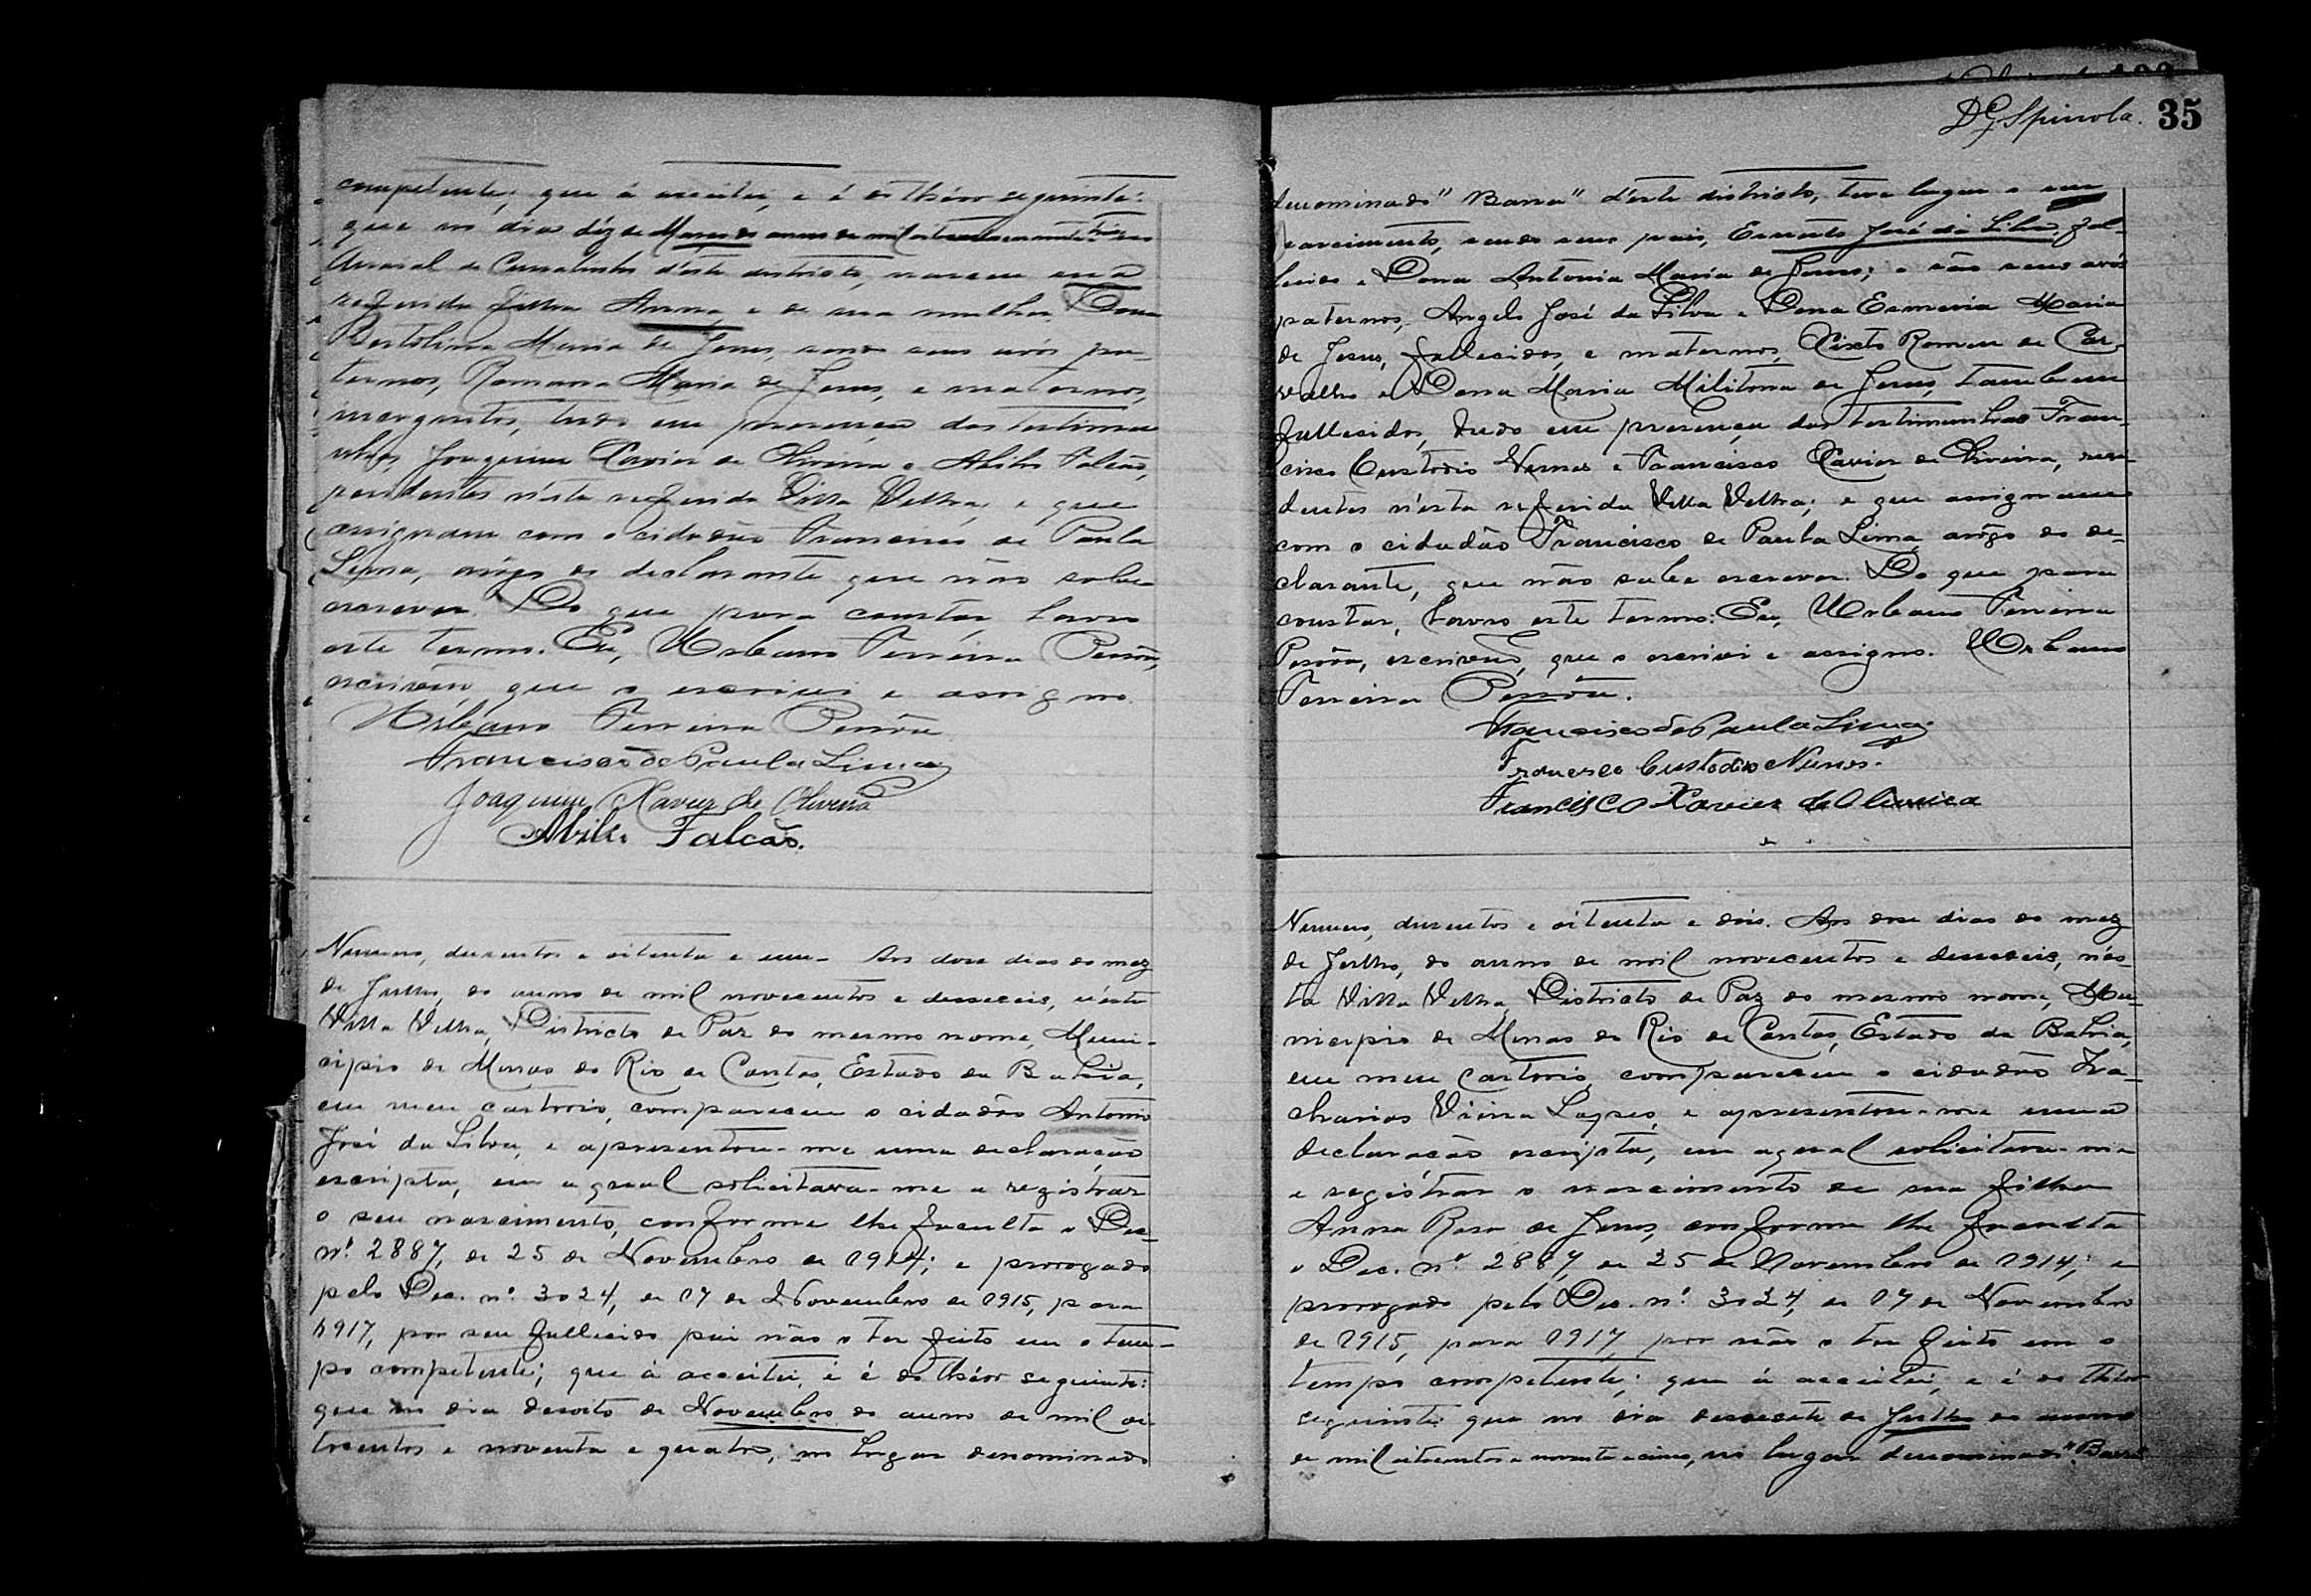 competente, que á acceitei, e é do théor seguinte:
que no dia déz de Março do anno de mil oitocentos e noventa
Arraial de Curralinho d'este districto, nasceu uma
referida filha Anna, e de sua mulher Dona
Bertolina Maria de Jesus, sendo seus avós pa-
ternos, Romana Maria de Jesus, e maternos,
incognitos, tudo em presença das testimu
nhas Joaquim Xavier de Oliveira e Abilio Falcão,
residentes n'esta referida Villa Velha, e que
assignam com o cidadão Francisco de Paula
Lima, arôgo do declarante que não sabe
escrever. Do que para constar lavro
este termo. Eu, Urbano Ferreira Pessôa,
escrivão, que o escrivi e assigno.
Urbano Ferreira Pessôa
Francisco de Paula Lima
Joaquim Xavier de Oliveira
Abilio Falcão.
Numero, dusentos e oitenta e um. Aos dose dias do mez
de Julho, do anno de mil novecentos e desseseis, n'esta
Villa Velha, Districto de Paz do mesmo nome, Muni-
cipio de Minas do Rio de Contas, Estado da Bahia,
em meu cartorio, compareceu o cidadão Antonio
José da Silva, e apresentou-me uma declaração
escripta, em a qual solicitava-me a registrar
o seu nascimento, conforme lhe faculta o Dec.
nº. 2887, de 25 de Novembro de 1914; e prorogado
pelo Dec. nº. 3024, de 17 de Novembro de 1915, para
1917, por seu fallecido pai não o ter feito em o tem-
po competente; que á acceitei, e é do théor seguinte:
que no dia desoito de Novembro do anno de mil oi-
tocentos e noventa e quatro, no lugar denominado
D G Spinola. 35
denominado "Barra" d'este districto, teve lugar o seu
nascimento, sendo seus pais, Ernesto José da Silva, fal-
lecido e Dona Antonia Maria de Jesus; e são seus avós
paternos, Angelo José da Silva e Dona Esmeria Maria
de Jesus, fallecidos, e maternos, Sixto Romeu de Car-
valho e Dona Maria Militona de Jesus, tambem
fallecidos, tudo em presença das testimunhas Fran-
cisco Custodio Nunes e Francisco Xavier de Oliveira, resi-
dentes n'esta referida Villa Velha; e que assignam
com o cidadão Francisco de Paula Lima, arôgo do de-
clarante, que não sabe escrever. Do que para
constar, lavro este termo. Eu, Urbano Ferreira
Pessôa, escrivão, que o escrivi e assigno. Urbano
Ferreira Pessôa.
Francisco de Paula Lima
Francisco Custodio Nunes.
Francisco Xavier de Oliveira
Numero, dusentos e oitenta e dois. Aos dose dias do mez
de Julho, do anno de mil novecentos e desseseis, n'es-
ta Villa Velha, Districto de Paz do mesmo nome, Mu-
nicipio de Minas do Rio de Contas, Estado da Bahia,
em meu cartorio, compareceu o cidadão Za-
charias Vieira Lopes, e apresentou-me uma
declaração escripta, em a qual solicitava-me
a registrar o nascimento de sua filha
Anna Rosa de Jesus, conforme lhe faculta
o Dec. nº. 2887, de 25 de Novembro de 1914; e
prorogado pelo Dec. nº. 3024, de 17 de Novembro
de 1915, para 1917, por não o ter feito em o
tempo competente; que á acceitei, e é do théor
seguinte: que no dia desesete de Julho do anno
de mil oitocentos e noventa e cinco, no lugar denominado "Barra